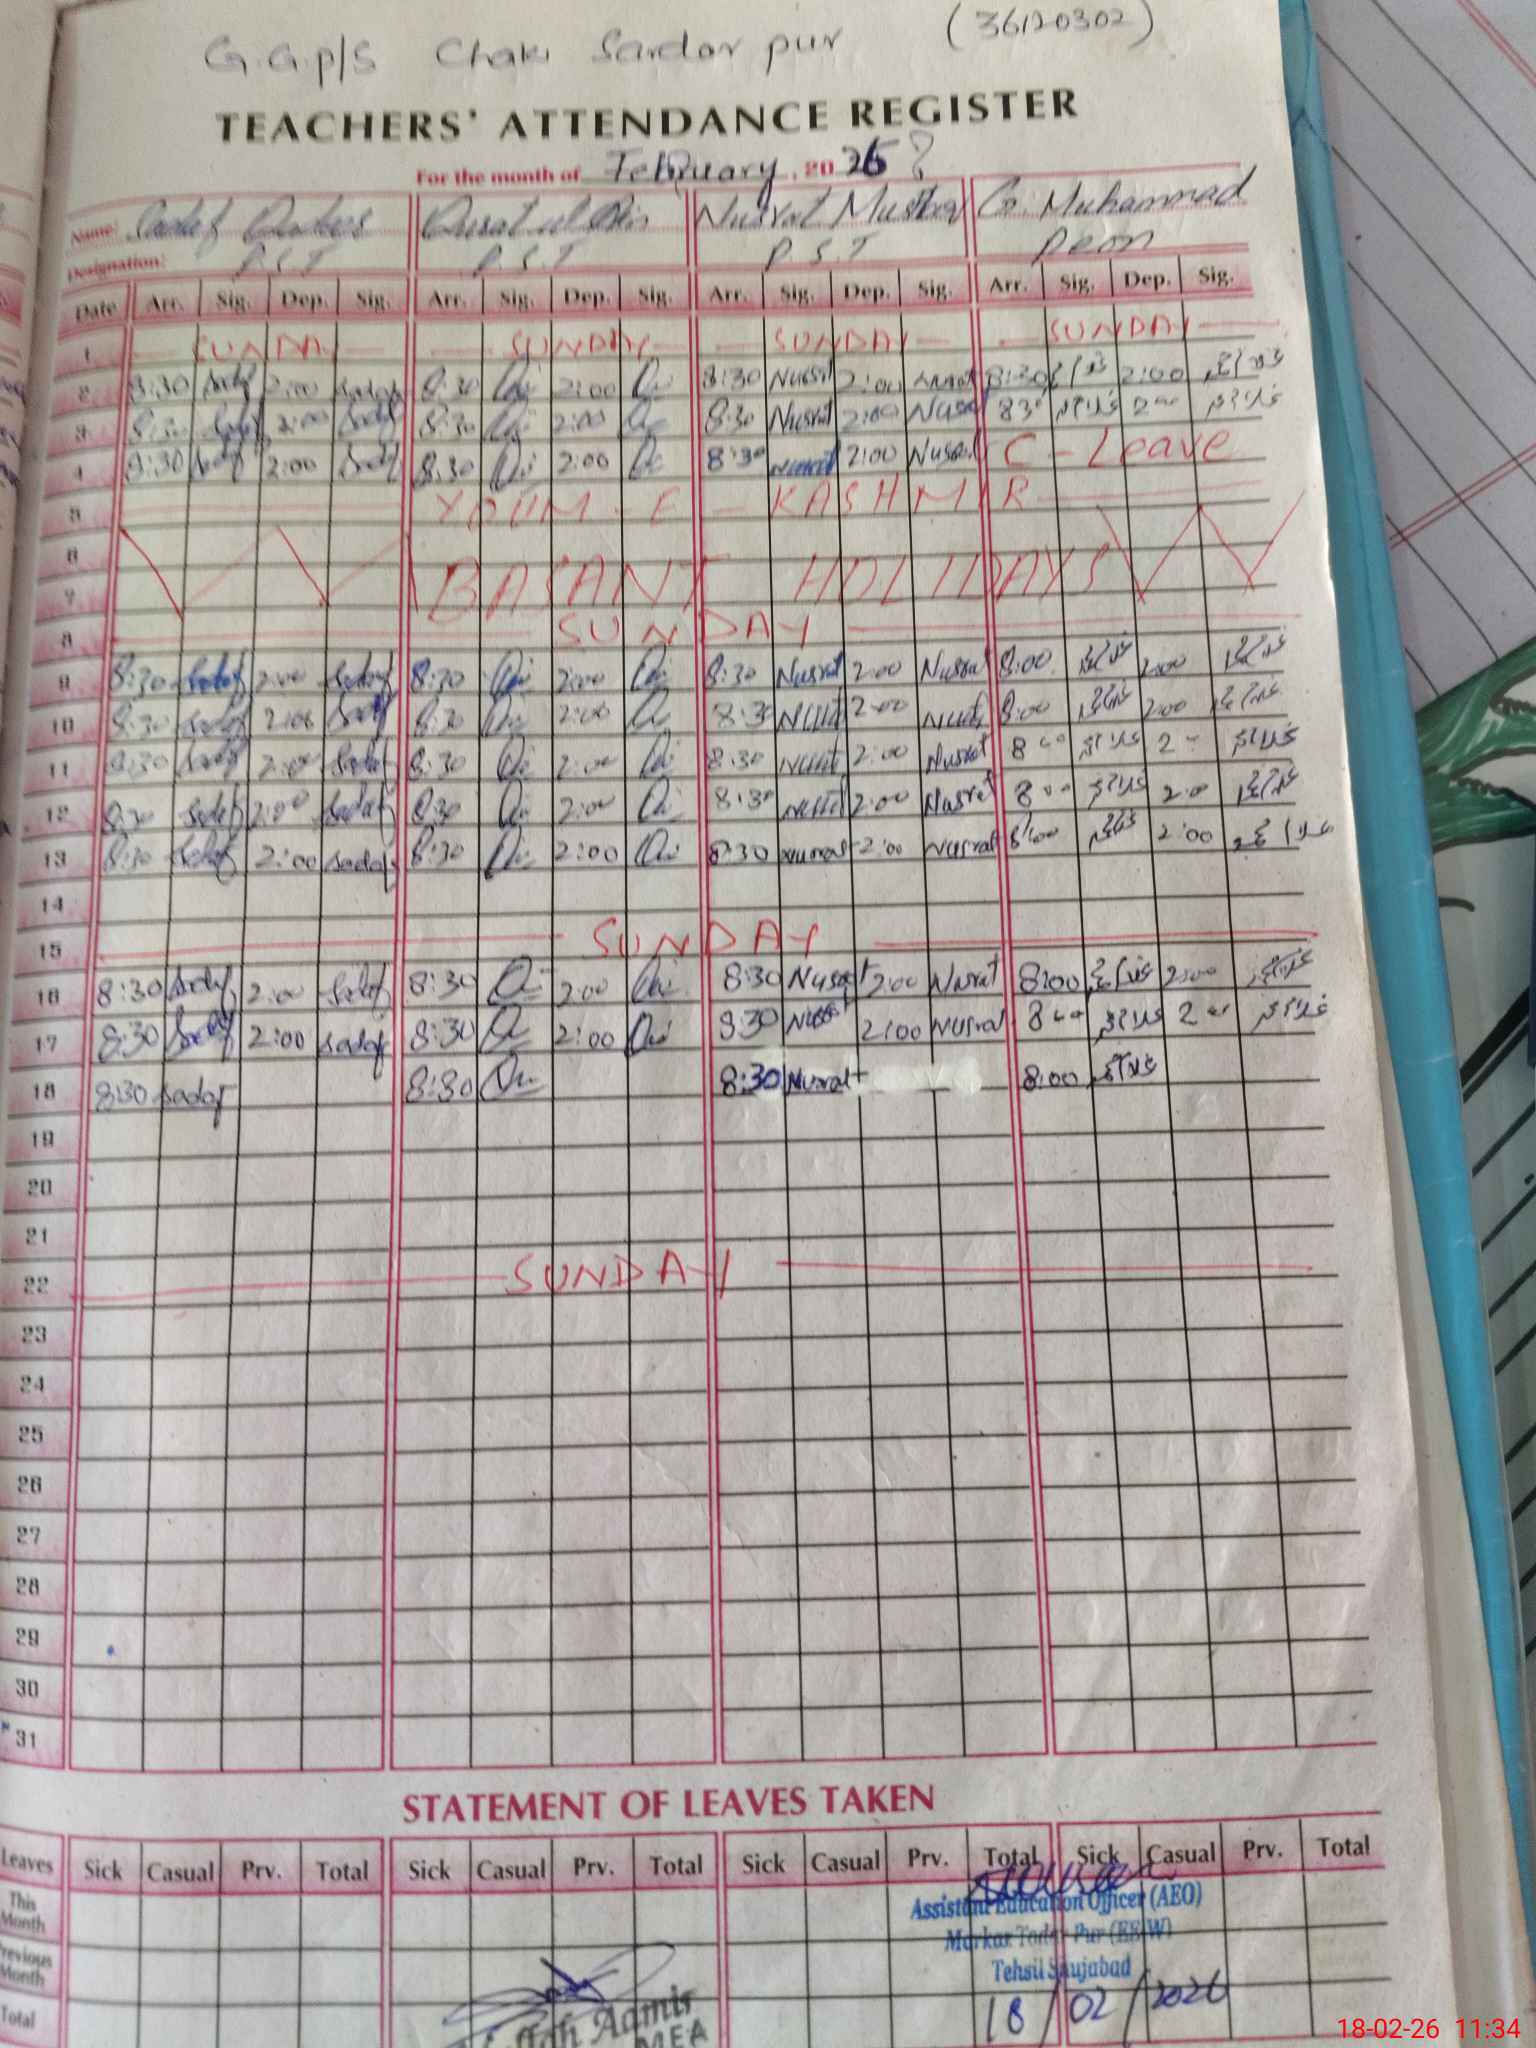 G.G.P/S Chak Sardar pur (36120302)
TEACHERS' ATTENDANCE REGISTER
For the month of February, 2026
Name: Sadaf Qurat ul Ain Nusrat Mushtaq G. Muhammad
Designation: P.S.T P.S.T P.S.T Peon
Date Arr. Sig. Dep. Sig. Arr. Sig. Dep. Sig. Arr. Sig. Dep. Sig. Arr. Sig. Dep. Sig.
1 SUNDAY SUNDAY SUNDAY SUNDAY
2 8:30 Sadaf 2:00 Sadaf 8:30 2:00 8:30 Nusrat 2:00 Nusrat 8:30 2:00
3 8:30 Sadaf 2:00 Sadaf 8:30 2:00 8:30 Nusrat 2:00 Nusrat 8 30 2 00
4 8:30 Sadaf 2:00 Sadaf 8:30 2:00 8:30 Nusrat 2:00 Nusrat C - Leave
5 YOUM - E - KASHMIR
6
7 BASANT HOLIDAYS
8 SUNDAY
9 8:30 Sadaf 2:00 Sadaf 8:30 2:00 8:30 Nusrat 2:00 Nusrat 8:00 2:00
10 8:30 Sadaf 2:00 Sadaf 8:30 2:00 8:30 2:00 8:00 2:00
11 8:30 Sadaf 2:00 Sadaf 8:30 2:00 8:30 2:00 Nusrat 8 00 2
12 8:30 Sadaf 2:00 Sadaf 8:30 2:00 8:30 2:00 Nusrat 8 00 2:00
13 8:30 Sadaf 2:00 Sadaf 8:30 2:00 8:30 Nusrat 2:00 Nusrat 8:00 2:00
14
15 SUNDAY
16 8:30 Sadaf 2:00 Sadaf 8:30 2:00 8:30 Nusrat 2:00 Nusrat 8:00 2:00
17 8:30 Sadaf 2:00 Sadaf 8:30 2:00 8:30 2:00 Nusrat 8 00 2 00
18 8:30 Sadaf 8:30 8:30 Nusrat 8:00
19
20
21
22 SUNDAY
23
24
25
26
27
28
29
30
31
STATEMENT OF LEAVES TAKEN
Leaves Sick Casual Prv. Total Sick Casual Prv. Total Sick Casual Prv. Total Sick Casual Prv. Total
This Month
Previous Month
Total
Assistant Education Officer (AEO)
Markaz Pur (EE-W)
Tehsil Shujabad
18/02/2026
Aamir
MEA
18-02-26 11:34